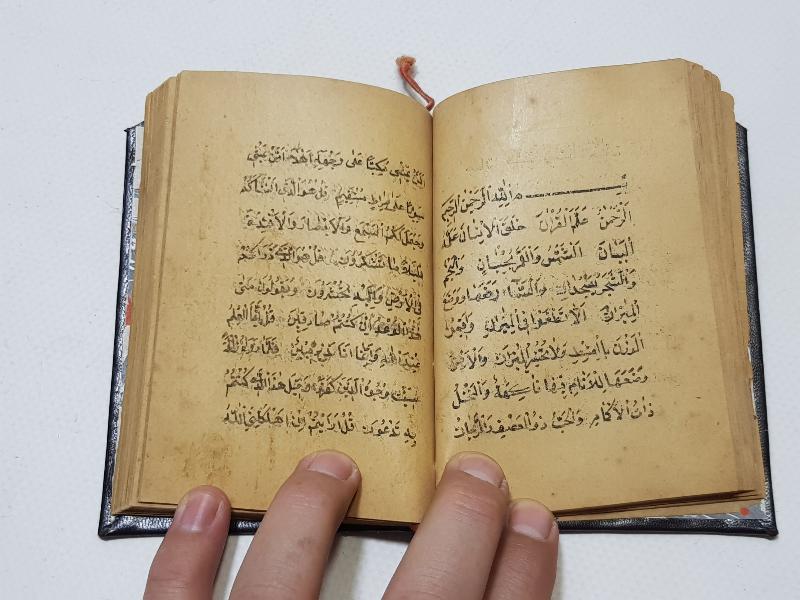 بِسْمِ اللّٰهِ الرَّحْمٰنِ الرَّحِيمِ
اَلرَّحْمٰنُ عَلَّمَ الْقُرْاٰنَ خَلَقَ الْاِنْسَانَ عَلَّمَهُ
الْبَيَانَ اَلشَّمْسُ وَالْقَمَرُ بِحُسْبَانٍ وَالنَّجْمُ
وَالشَّجَرُ يَسْجُدَانِ وَالسَّمَاءَ رَفَعَهَا وَوَضَعَ
الْمِيزَانَ اَلَّا تَطْغَوْا فِى الْمِيزَانِ وَاَقِيمُوا
الْوَزْنَ بِالْقِسْطِ وَلَا تُخْسِرُوا الْمِيزَانَ وَالْاَرْضَ
وَضَعَهَا لِلْاَنَامِ فِيهَا فَاكِهَةٌ وَالنَّخْلُ
ذَاتُ الْاَكْمَامِ وَالْحَبُّ ذُو الْعَصْفِ وَالرَّيْحَانُ
اَفَمَنْ يَمْشِى مُكِبًّا عَلٰى وَجْهِهِ اَهْدٰى اَمَّنْ يَمْشِى
سَوِيًّا عَلٰى صِرَاطٍ مُسْتَقِيمٍ قُلْ هُوَ الَّذِى اَنْشَاَكُمْ
وَجَعَلَ لَكُمُ السَّمْعَ وَالْاَبْصَارَ وَالْاَفْئِدَةَ
قَلِيلًا مَا تَشْكُرُونَ قُلْ هُوَ الَّذِى ذَرَاَكُمْ
فِى الْاَرْضِ وَاِلَيْهِ تُحْشَرُونَ وَيَقُولُونَ مَتٰى
هٰذَا الْوَعْدُ اِنْ كُنْتُمْ صَادِقِينَ قُلْ اِنَّمَا الْعِلْمُ
عِنْدَ اللّٰهِ وَاِنَّمَا اَنَا نَذِيرٌ مُبِينٌ فَلَمَّا رَاَوْهُ زُلْفَةً
سِيئَتْ وُجُوهُ الَّذِينَ كَفَرُوا وَقِيلَ هٰذَا الَّذِى كُنْتُمْ
بِهِ تَدَّعُونَ قُلْ اَرَاَيْتُمْ اِنْ اَهْلَكَنِىَ اللّٰهُ